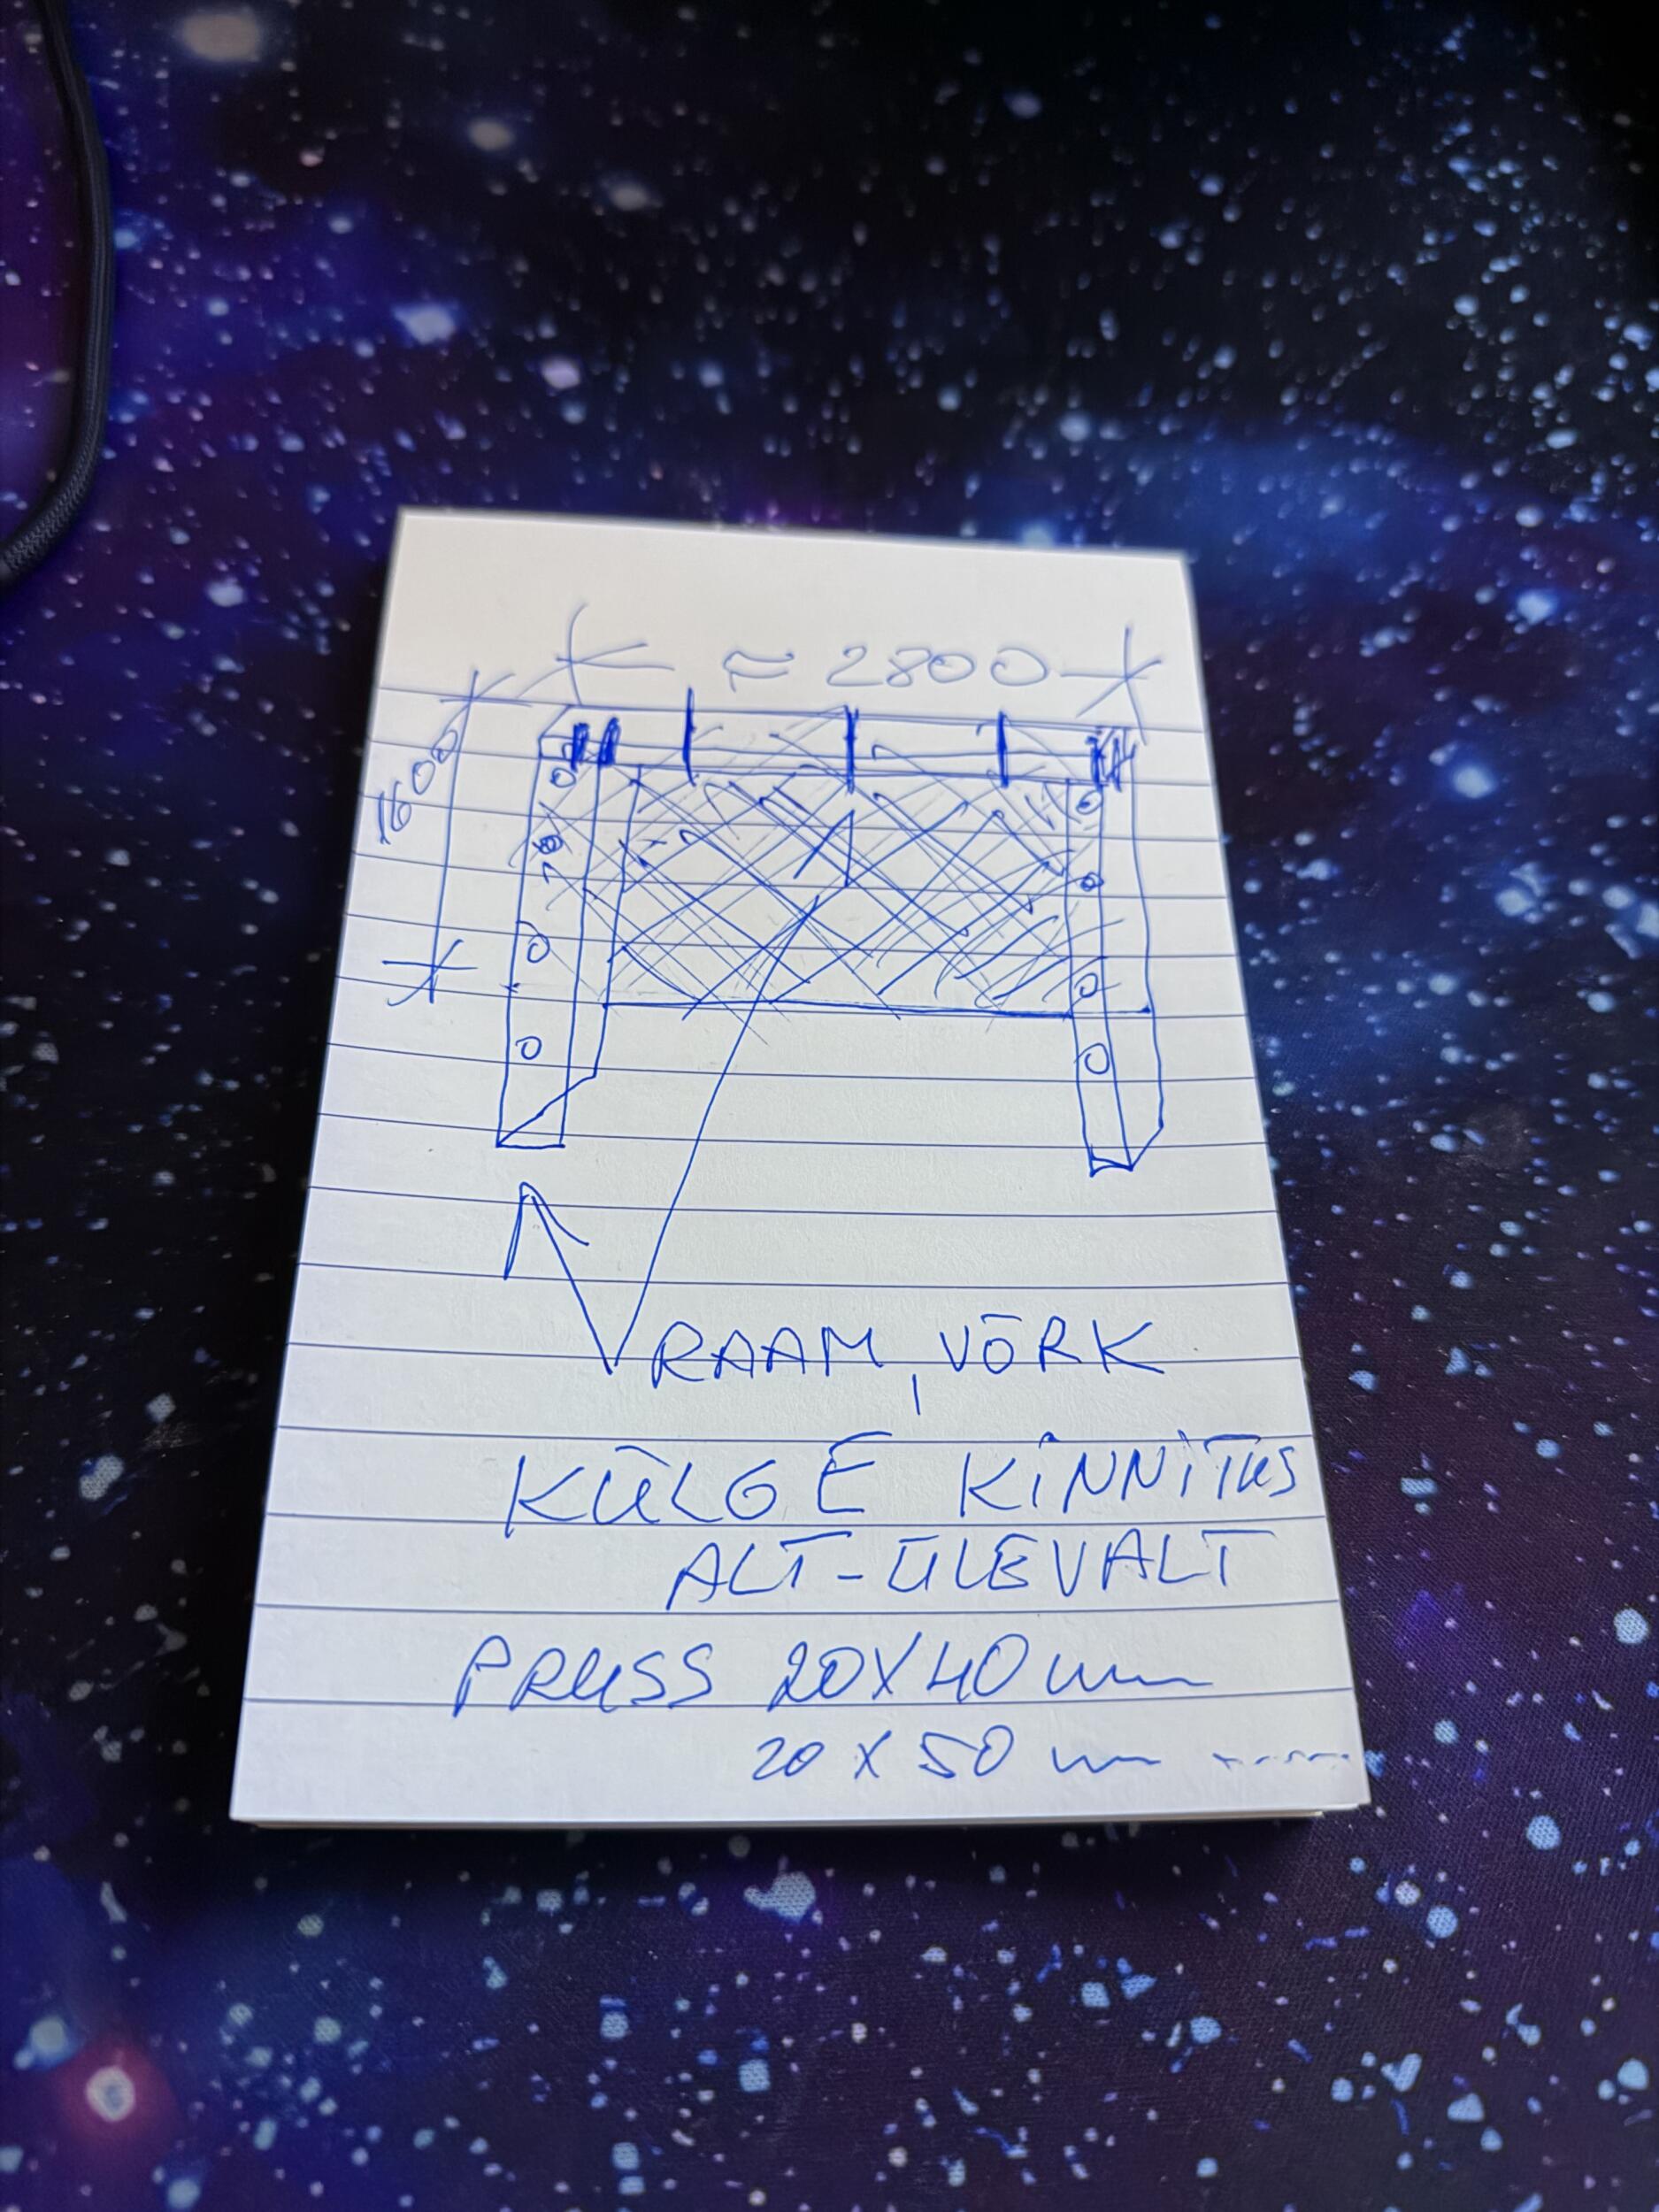 ≈ 2800
1600
RAAM, VÕRK
KÜLGE KINNITUS
ALT-ÜLEVALT
PRUSS 20X40 mm
20 X 50 m